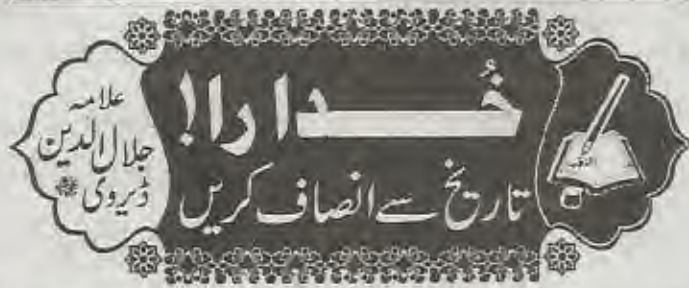 خُدارا!
تاریخ سے انصاف کریں
علامہ
جلال الدین
ڈیروی